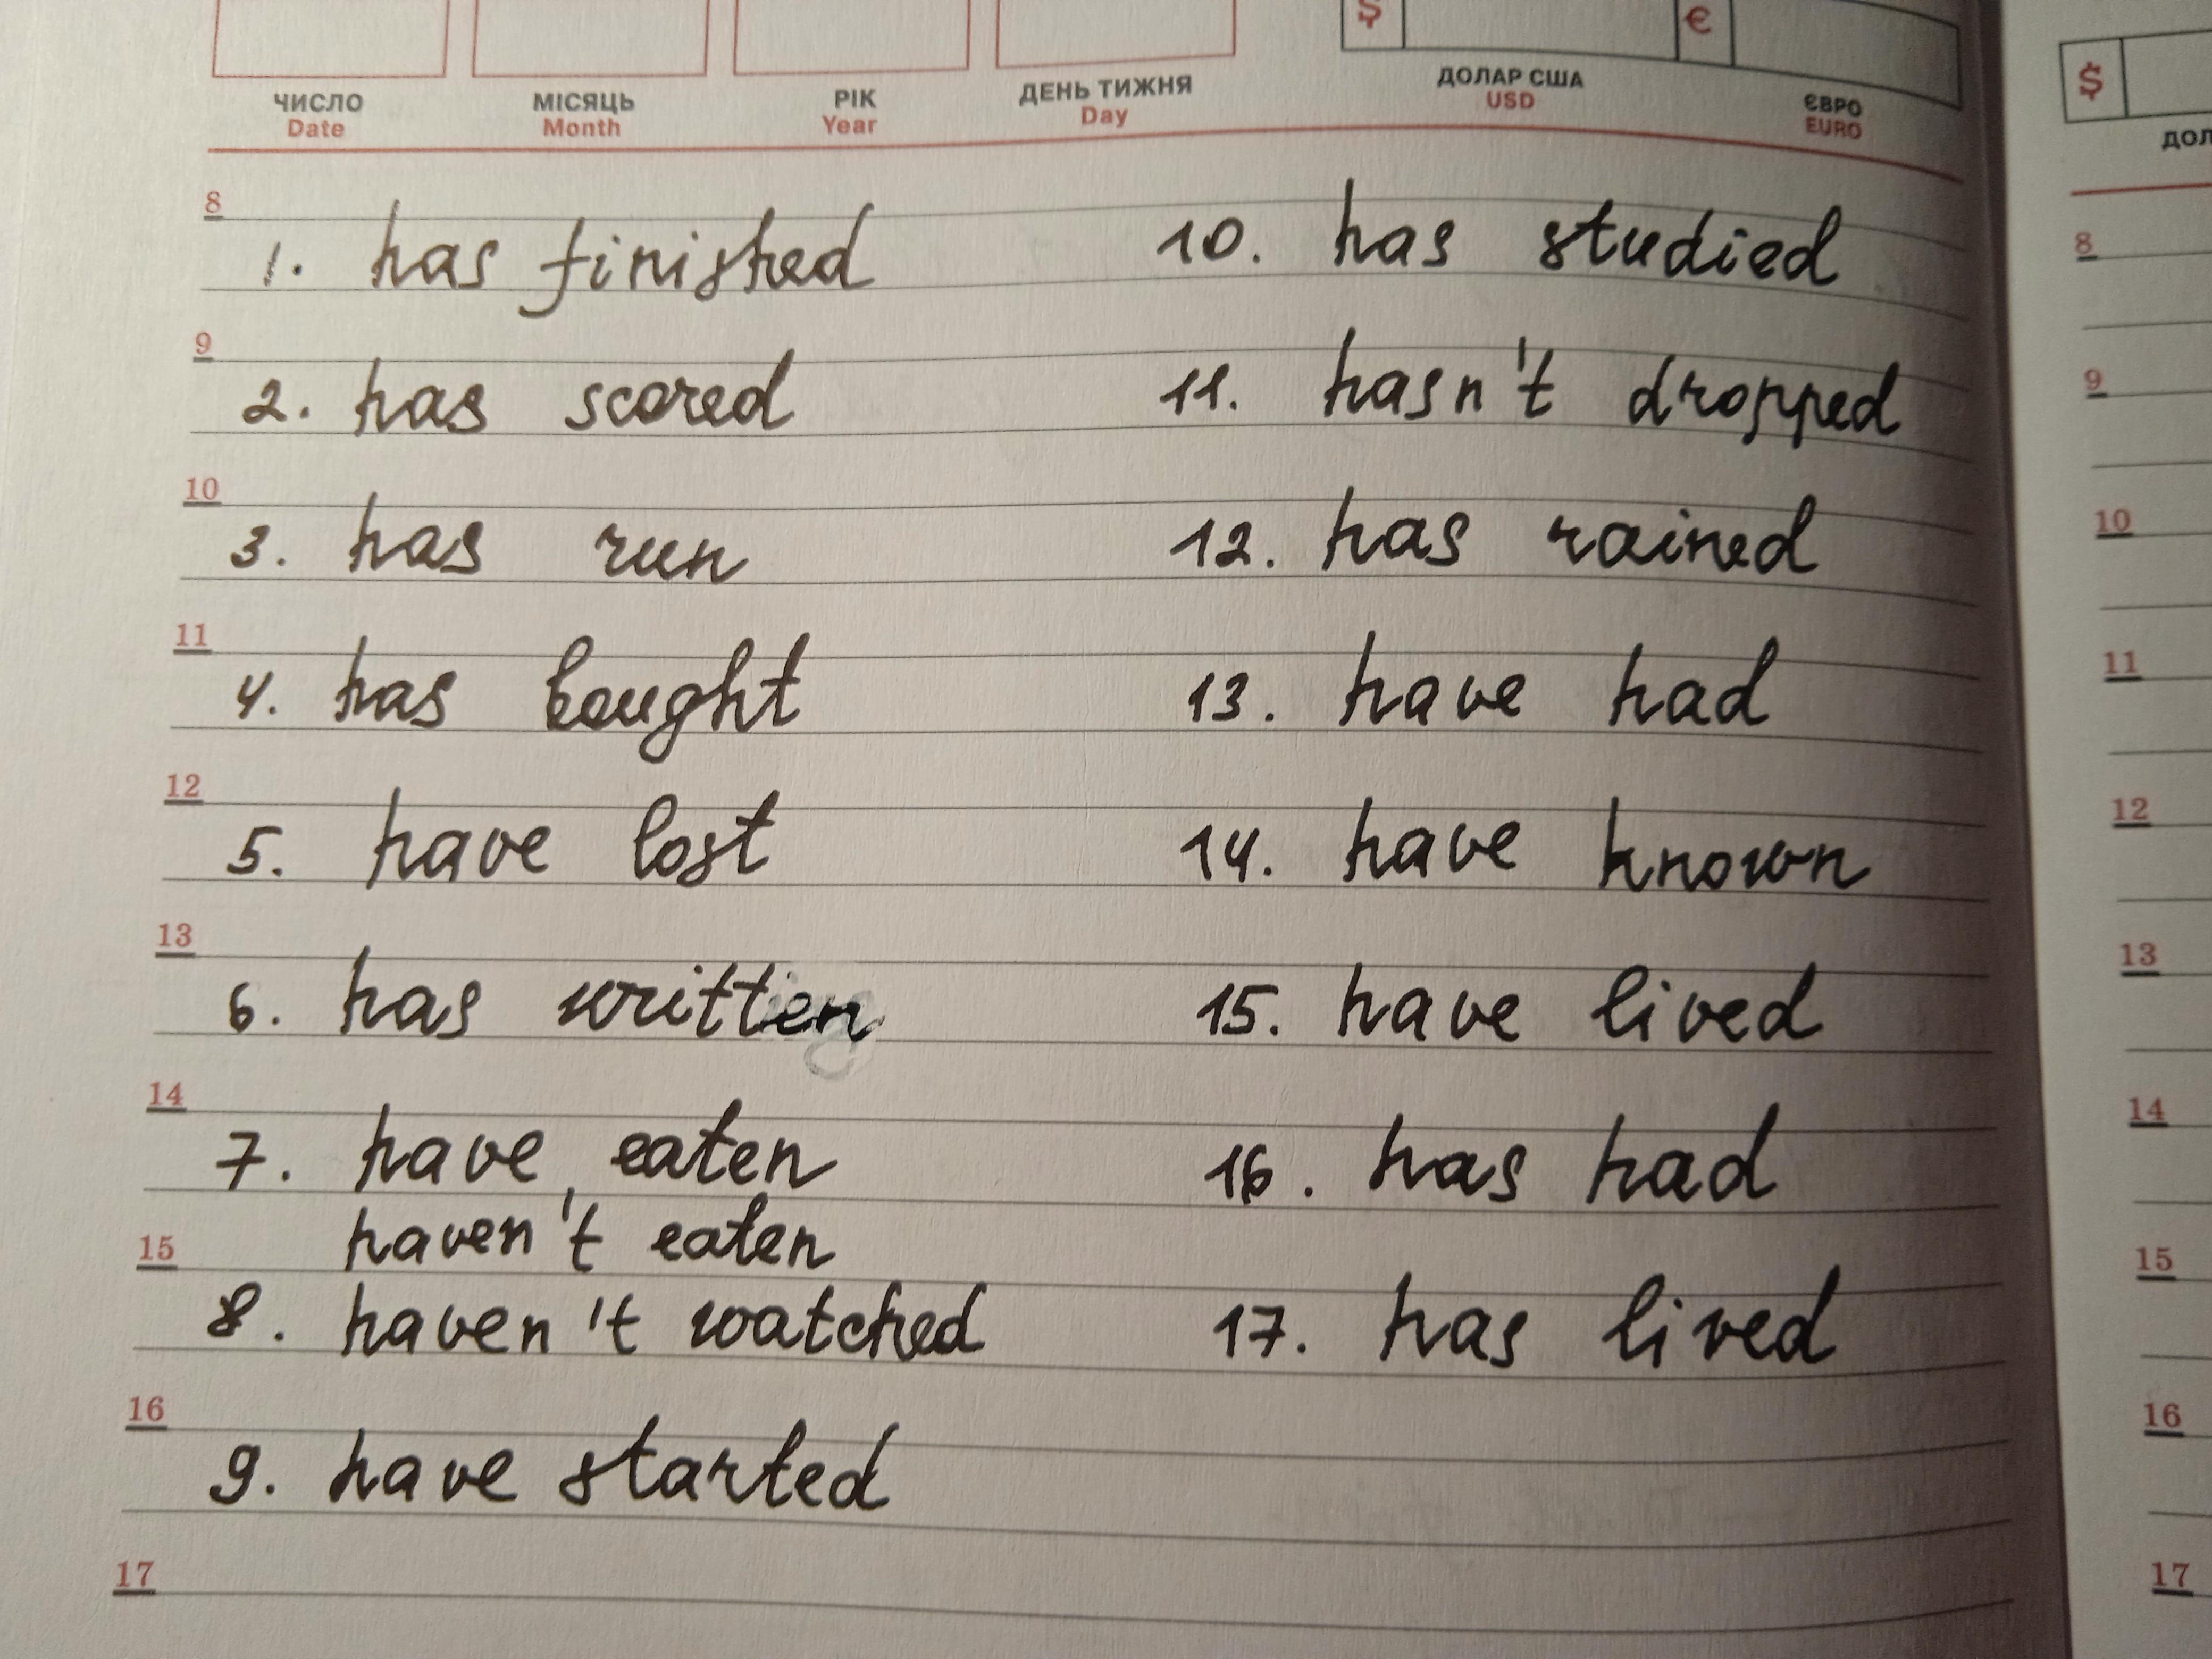 $
€
ЧИСЛО
Date
МІСЯЦЬ
Month
РІК
Year
ДЕНЬ ТИЖНЯ
Day
ДОЛАР США
USD
ЄВРО
EURO
8
1. has finished
9
2. has scored
10
3. has run
11
4. has bought
12
5. have lost
13
6. has written
14
7. have eaten
haven't eaten
15
8. haven't watched
16
9. have started
17
10. has studied
11. hasn't dropped
12. has rained
13. have had
14. have known
15. have lived
16. has had
17. has lived
$
8
9
10
11
12
13
14
15
16
17